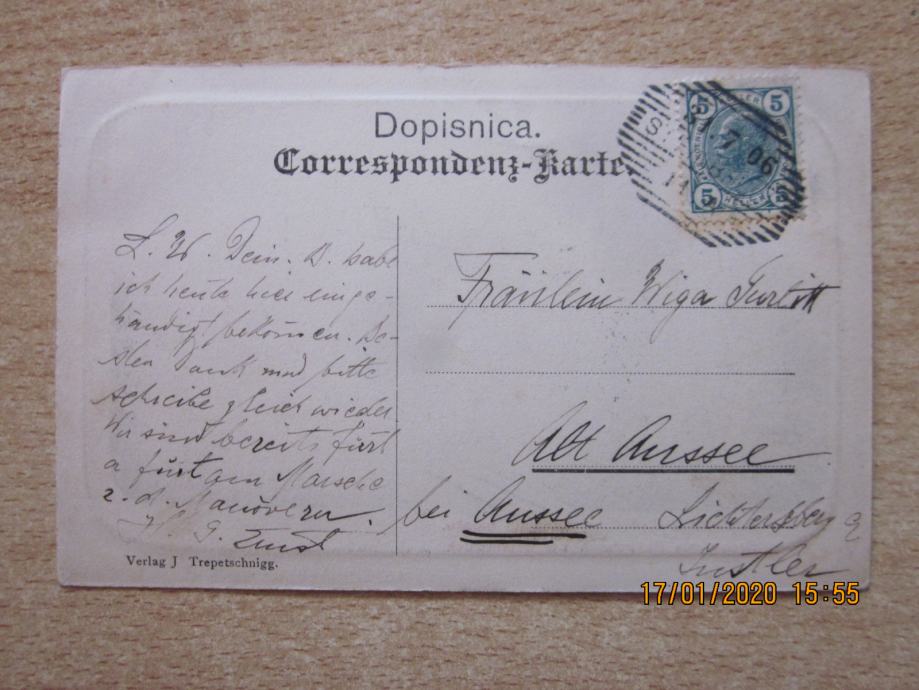 Dopisnica.
Correspondenz-Karte.
5 HELLER 5
5 HELLER 5
7 06
L. W. Dein. B. habe
ich heute hier einge-
händigt bekom̄en. Be-
sten Dank und bitte
schreibe gleich wieder
Wir sind bereits
a am Marsche
z. d. Manövern.
G. Ernst
Verlag J Trepetschnigg.
Fräulein Wiga Gurlitt
Alt Aussee
bei Aussee
17/01/2020 15:55